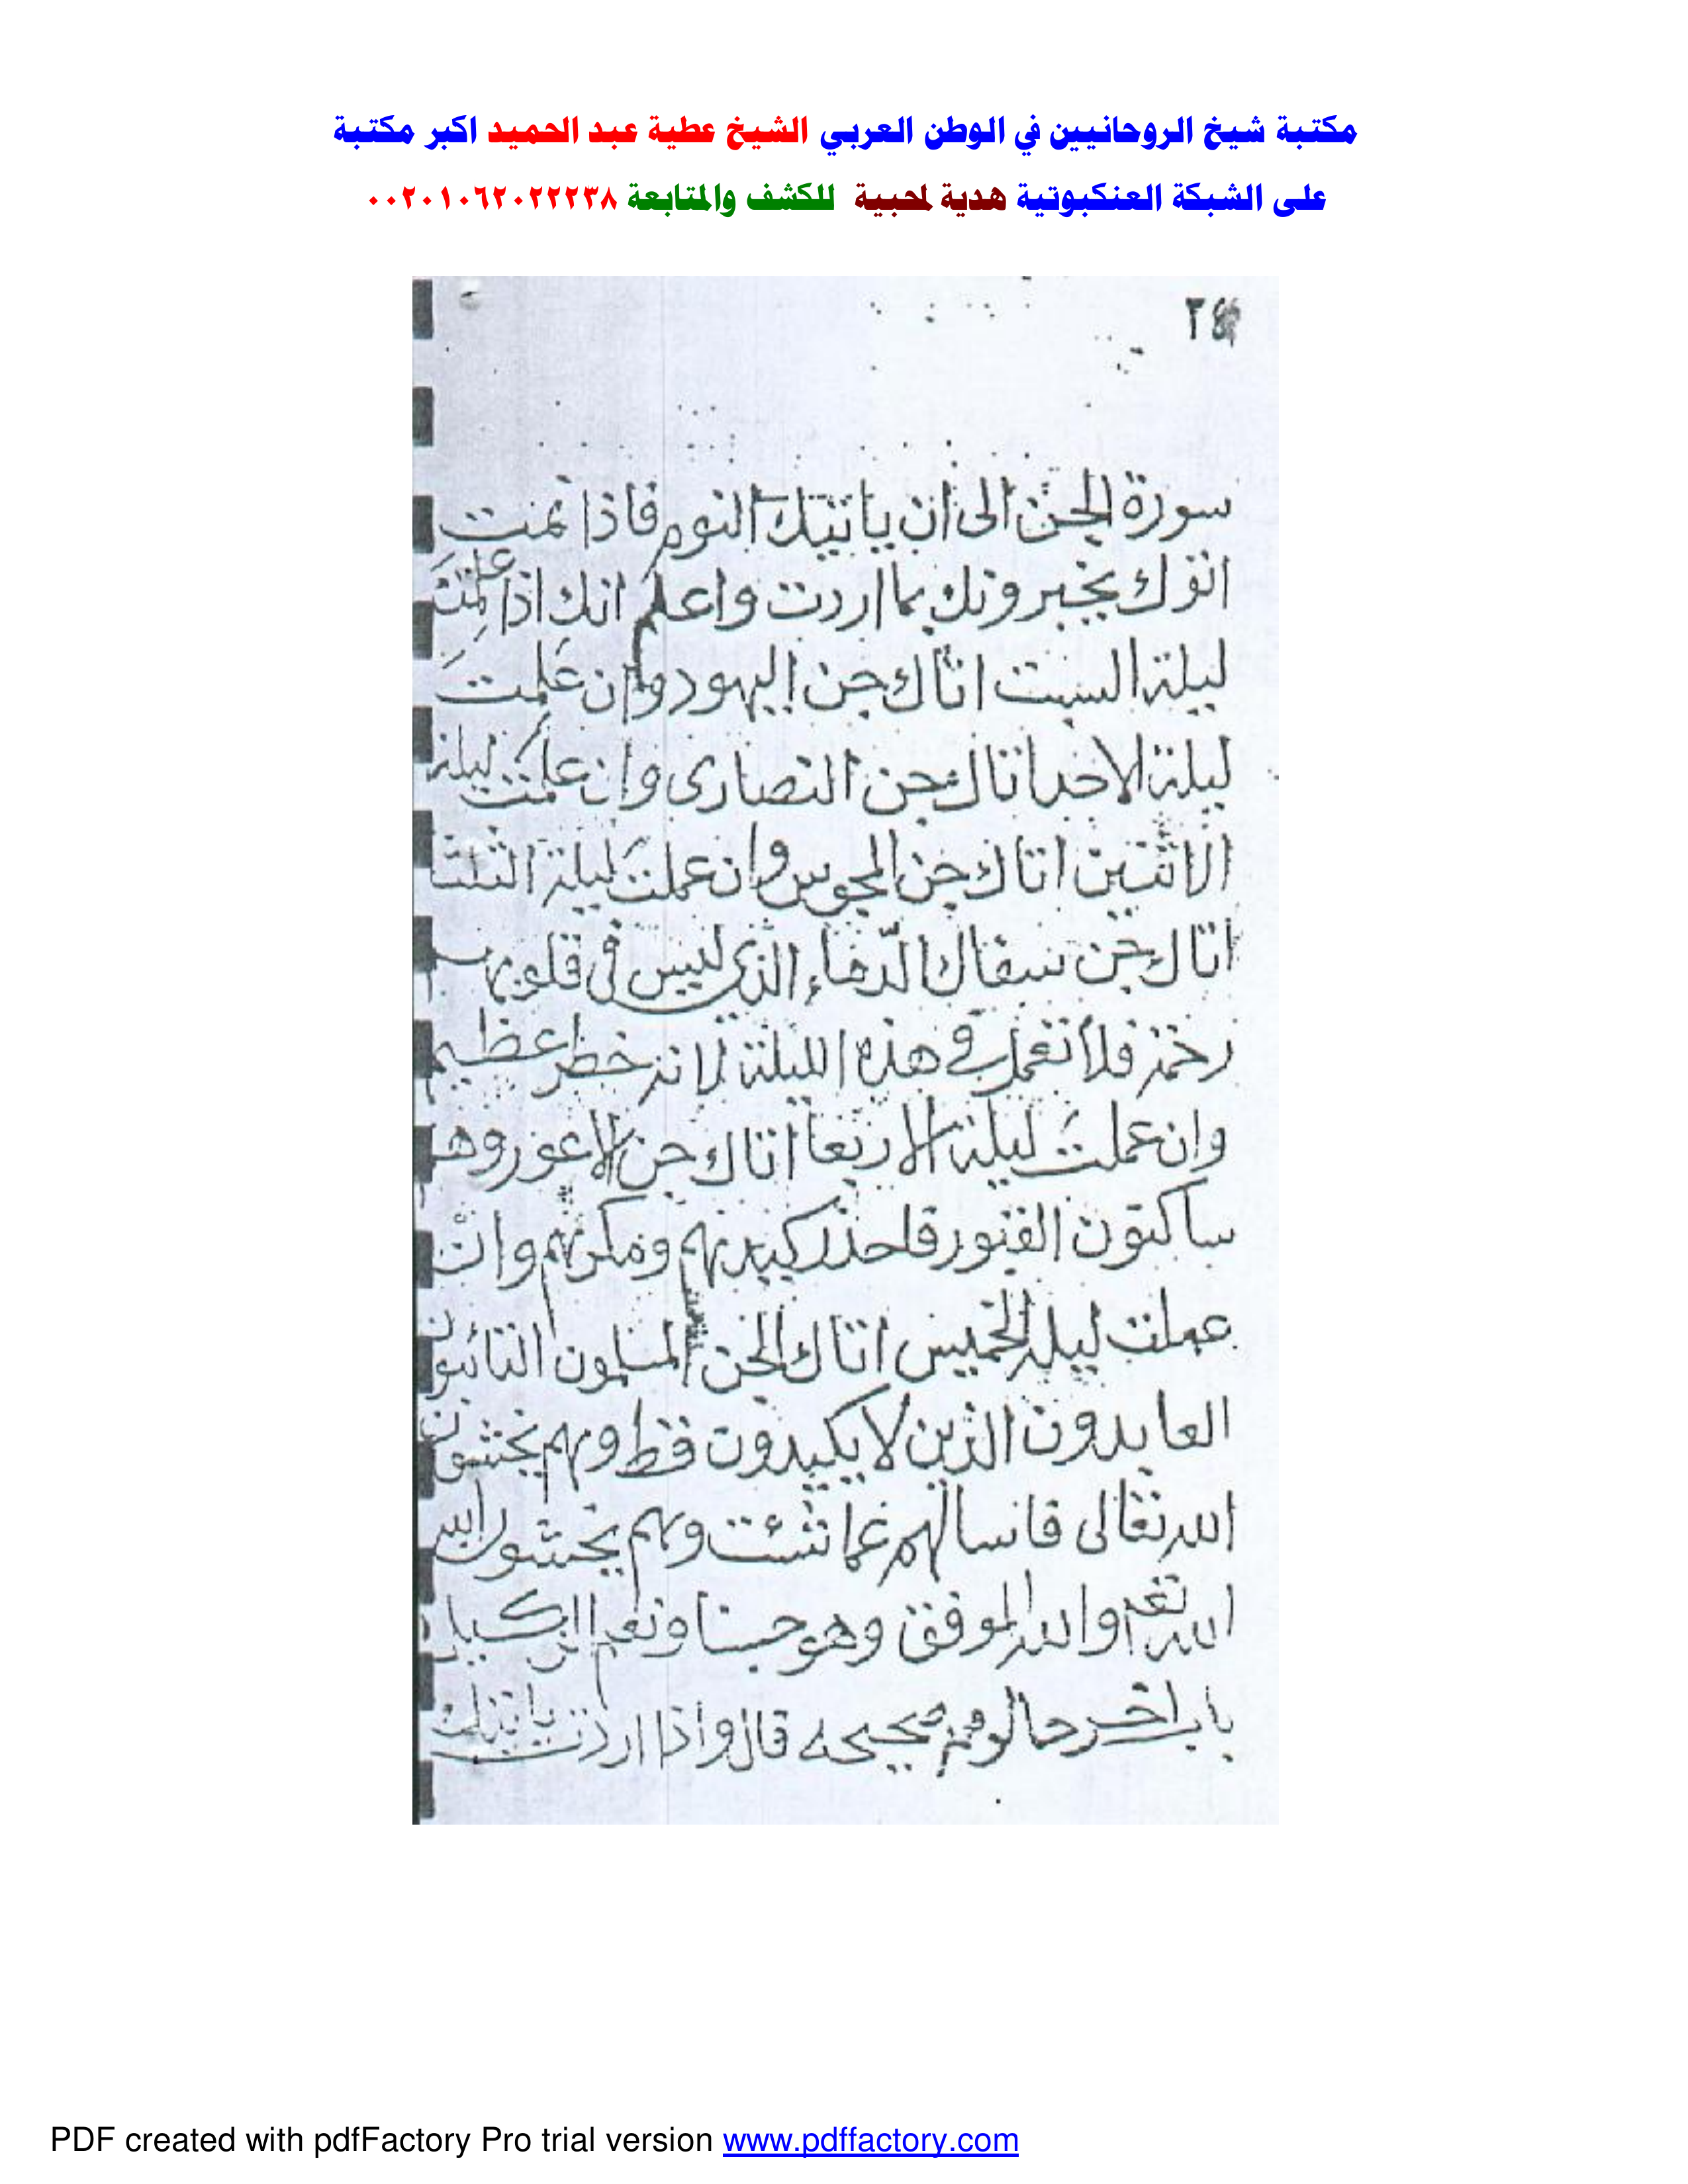 مكتبة شيخ الروحانيين في الوطن العربي الشيخ عطية عبد الحميد اكبر مكتبة
على الشبكة العنكبوتية هدية لمحبية للكشف والمتابعة ٠٠٢٠١٠٦٢٠٢٢٢٣٨
سورة الجن الى ان ياتيك النوم فاذا نمت
اتوك يخبرونك بما اردت واعلم انك اذا عملت
ليلة السبت اتاك جن اليهود وان عملت
ليلة الاحد اتاك جن النصارى وان عملت ليلة
الاثنين اتاك جن المجوس وان عملت ليلة الثلثا
اتاك جن سفاك الدماء الذي ليس في قلوبهم
رحمة فلا تعمل في هذه الليلة لانه خطر عظيم
وان عملت ليلة الاربعا اتاك جن الاعور وهم
ساكنون القبور فاحذر كيدهم ومكرهم وان
عملت ليلة الخميس اتاك الجن المسلمون التائبون
العابدون الذين لا يكيدون قط وهم يخشون
الله تعالى فاسالهم عما شئت وهم يخشون الله
الله والله الموفق وهو حسبنا ونعم الوكيل
باب اخر قال واذا اردت ياتيك
PDF created with pdfFactory Pro trial version www.pdffactory.com